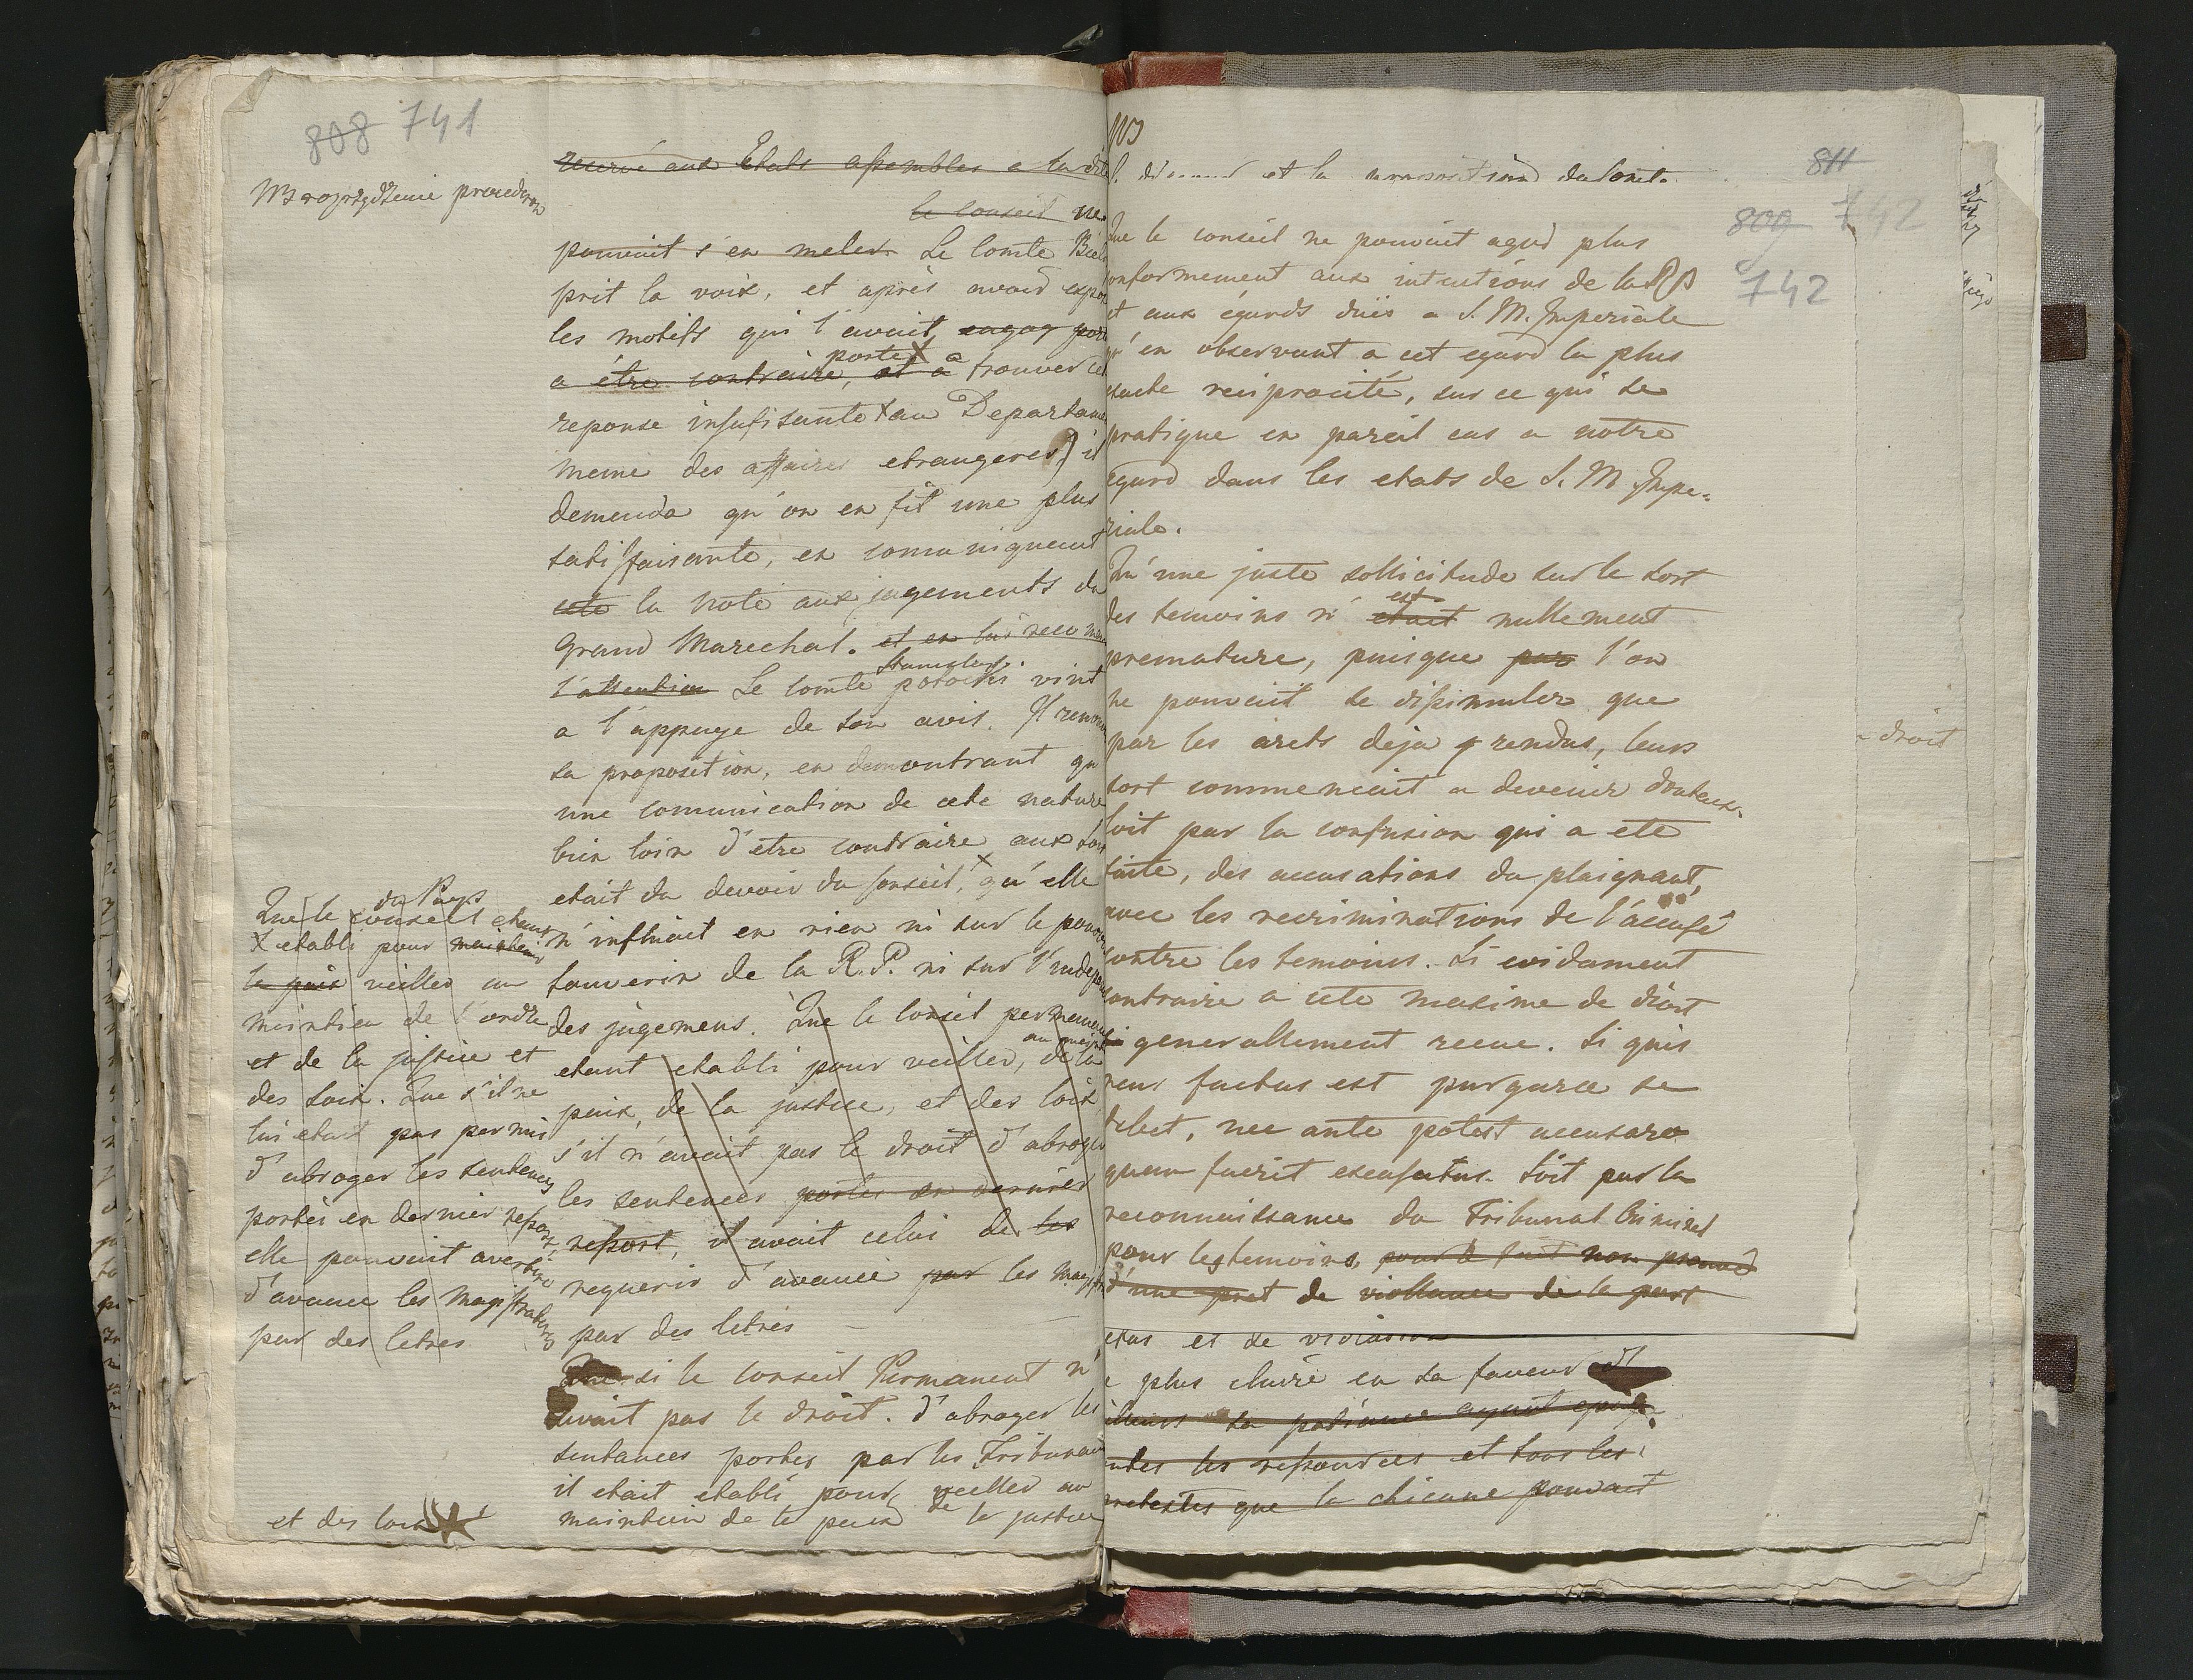 808 741
NB rozrządzenie proceder
reservé aux Etats assembles a la
le conseil ne
pouvait s'en meler. Le Comte
prit la voix, et après avoir
les motifs qui l'avait engag
a être contraire, et a porter a trouver
reponse insufisante au Departam
meme des affaires etrangeres) il
demenda qu'on en fit une plus
satisfaisante, en comuniqueant
cete la note aux jugements du
Grand Marechal. et en lui
l'attention Le Comte Stanislas potocki vint
a l'appuye de son avis. Il
sa proposition, en demontrant qu
une comunication de cete nature
bien loin d'etre contraire aux
etait du devoir du Conseil, x qu'elle
n'influait en rien ni sur le
souverin de la R.P. ni sur l'
des jugemens. Que le Conseil permement
etant etabli pour veiller, au de la
paix, de la justice, et des loix
s'il n'avait pas le droit d'abroger
les sentences portes en dernier
ressort, il avait celui de les
requerir d'avance par les
par des letres
Que si le Conseil Permanent n'
avait pas le droit. d'abroger les
sentances portes par les Tribunau
il etait etabli pour veiller au
maintien de la paix de la justice
Que le conseil du Pays etant
x etabli pour maintenir
la paix veiller au
maintien de l'ordre
et de la justice et
des loix. Que s'il ne
lui etait pas permis
d'abroger les sentences
portés en dernier ressort,
elle pouvait avertir
d'avance les Magistratures
par des letres
et des loix
NB
et la
811
809 742
742
Que le conseil ne pouvait agir plus
onformement aux intentions de la RP
et aux égards dûis a S. M. Imperiale
qu'en observant a cet egard la plus
exacte reciprocité, sur ce qui se
pratique en pareil cas a notre
egard dans les etats de S. M Impe-
riale.
Qu'une juste sollicitude sur le sort
des temoins n' etait est nullement
premature, puisque par l'on
ne pouvait se dissimuler que
par les arets deja rendus, leur
sort commencait a devenir douteux.
Soit par la confusion qui a ete
faite, des accusations du plaignant,
avec les recriminations de l'accusé
contre les temoins. Si evidament
contraire a cete maxime de droit
generallement recue. Si quis
reus factus est purgare se
debet, nec ante potest accusare
quam fuerit excusatus. Soit par la
reconnaissance du Tribunal Criminel
pour les temoins, pour le fait non prouvé
d'une pret de viollance de la part
droit
et de
plus claire en sa faveur et
la patiance ayant
les ressources et tous les
que la chicane pouvait